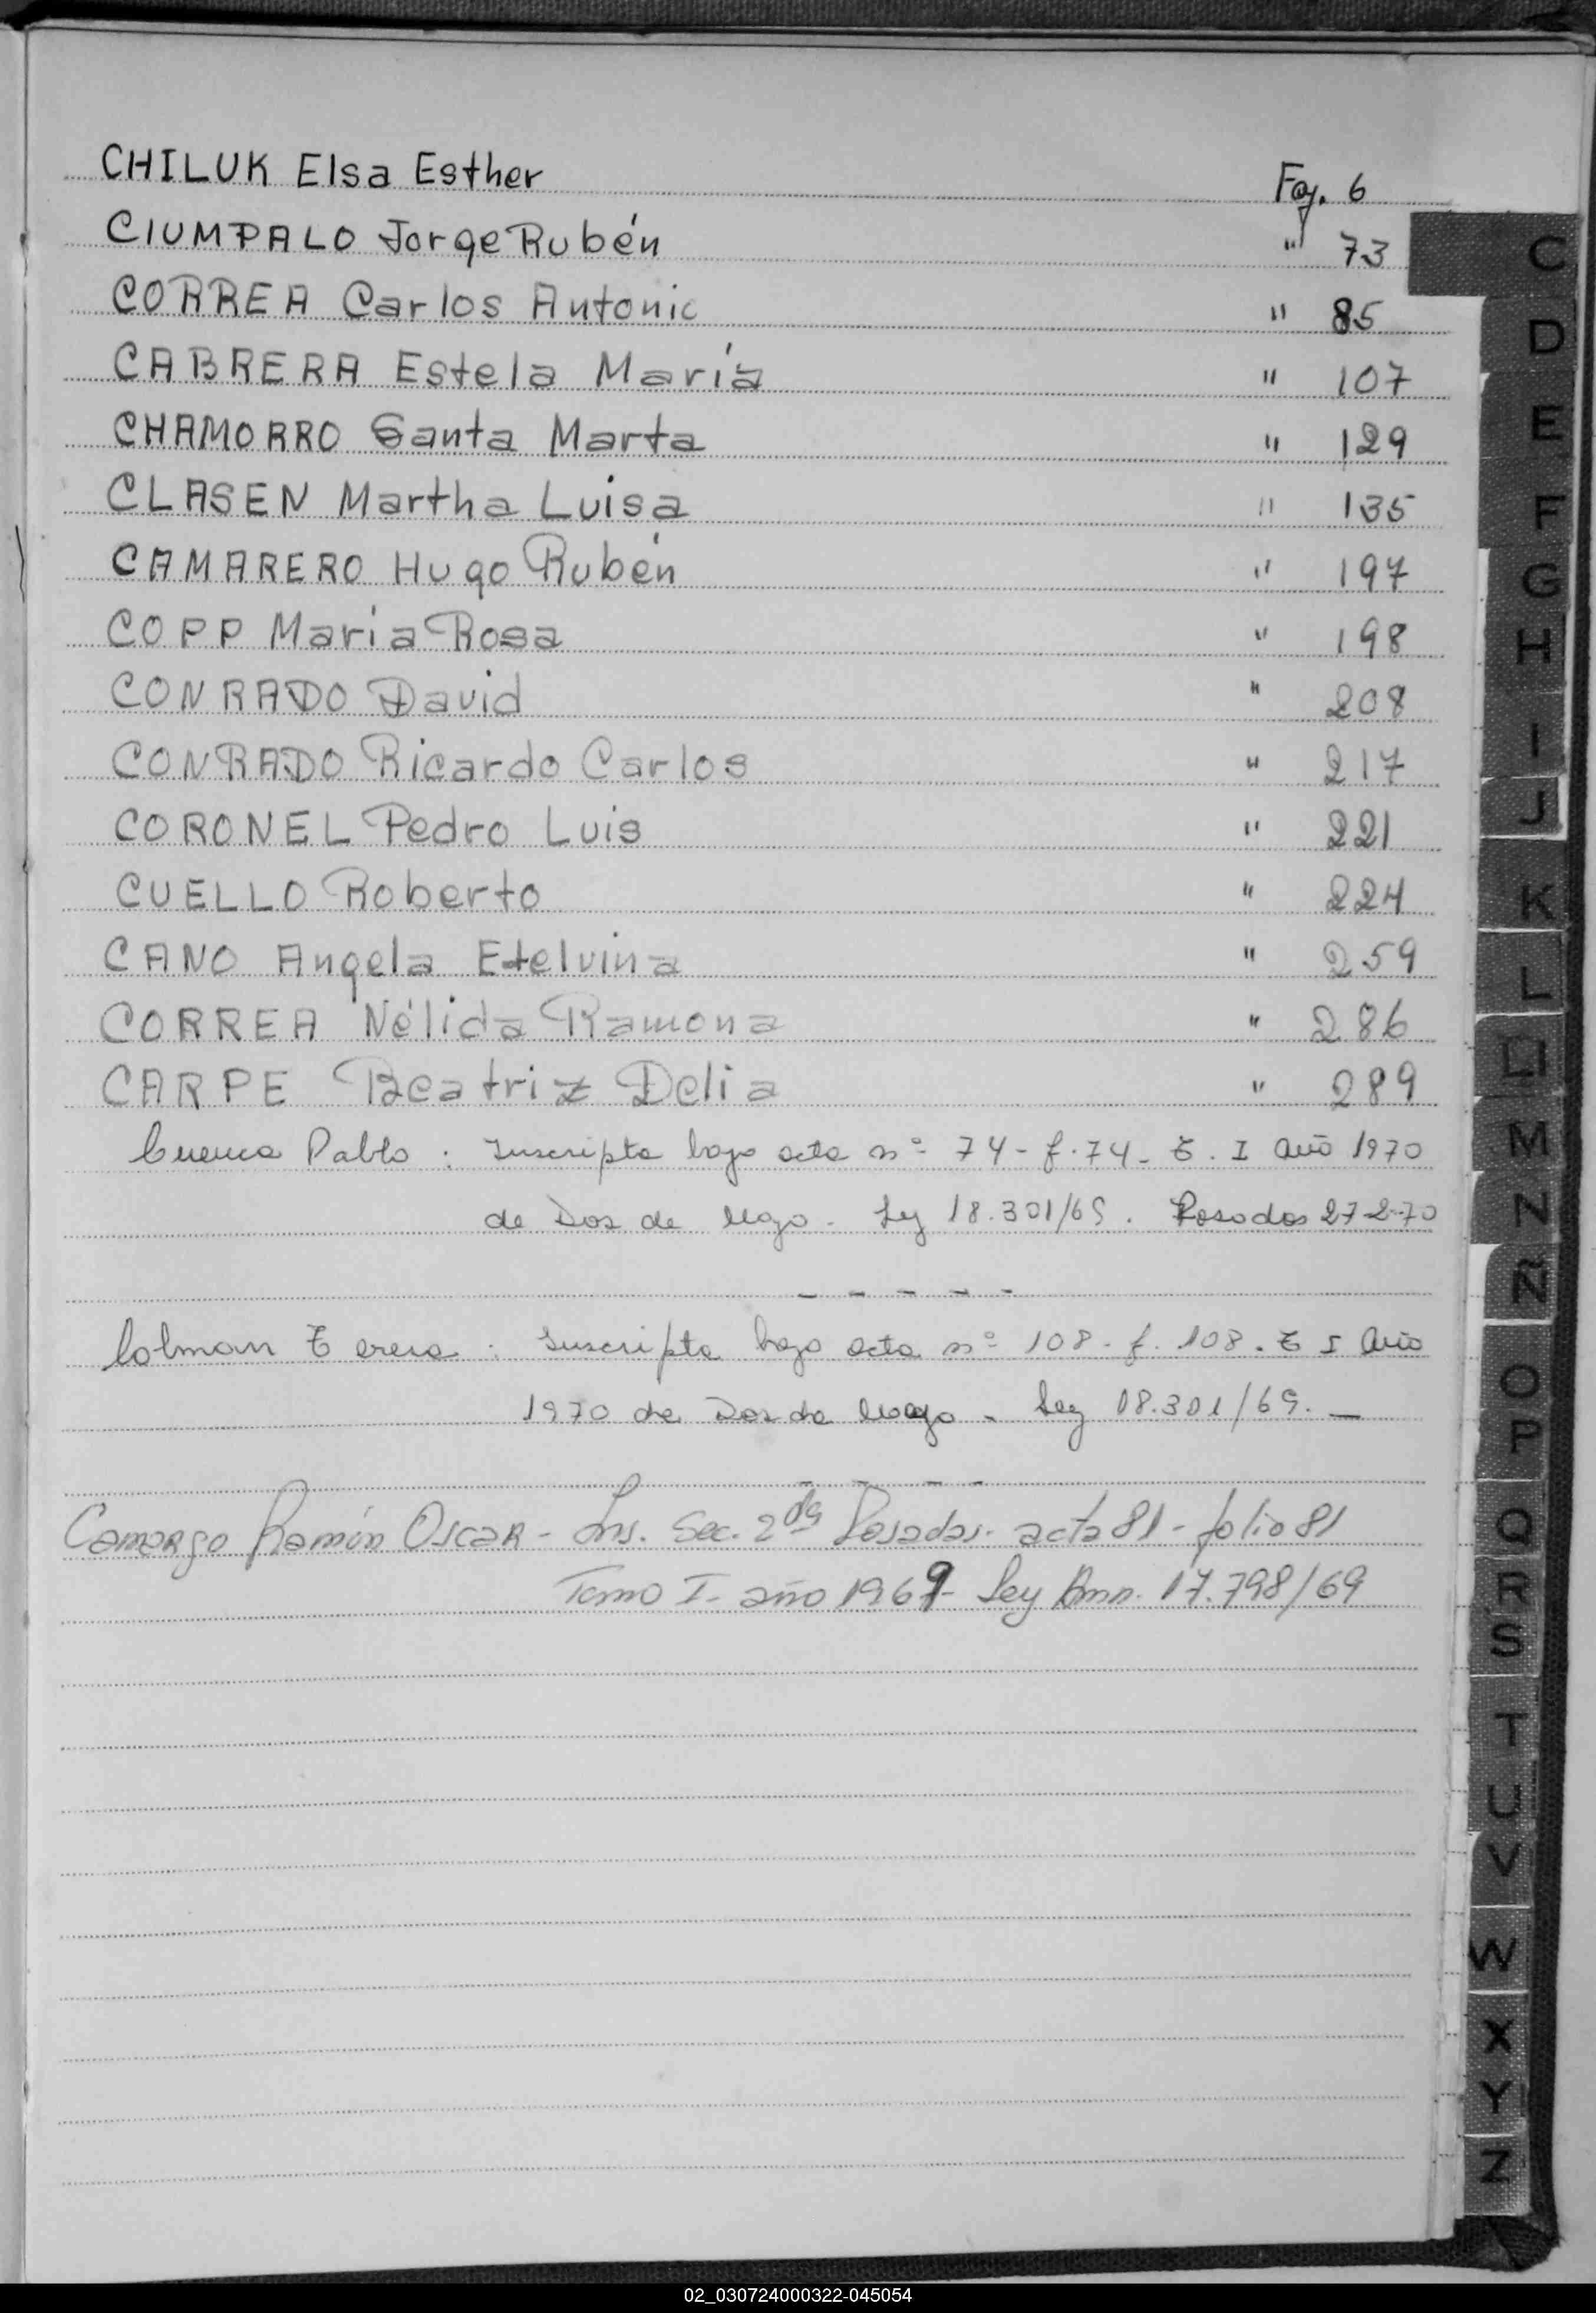 CHILUK Elsa Esther Foj. 6
CIUMPALO Jorge Rubén " 73
CORREA Carlos Antonio " 85
CABRERA Estela María " 107
CHAMORRO Santa Marta " 129
CLASEN Martha Luisa " 135
CAMARERO Hugo Rubén " 197
COPP Maria Rosa " 198
CONRADO David " 208
CONRADO Ricardo Carlos " 217
CORONEL Pedro Luis " 221
CUELLO Roberto " 224
CANO Angela Etelvina " 259
CORREA Nélida Ramona " 286
CARPE Beatriz Delia " 289
Cuenca Pablo : Inscripto bajo acta nº 74 - f. 74 - T. I Año 1970
de Dos de Mayo - Ley 18.301/69. Posadas 27-2-70
- - - - -
Colman Teresa : Inscripta bajo acta nº 108 - f. 108. T I Año
1970 de Dos de Mayo - Ley 18.301/69. -
- - - -
Camargo Ramón Oscar - Ins. Sec. 2da Posadas. acta 81 - folio 81
Tomo I - año 1969 - Ley Amn. 17.798/69
C
D
E
F
G
H
I
J
K
L
LL
M
N
Ñ
O
P
Q
R
S
T
U
V
W
X
Y
Z
02_030724000322-045054